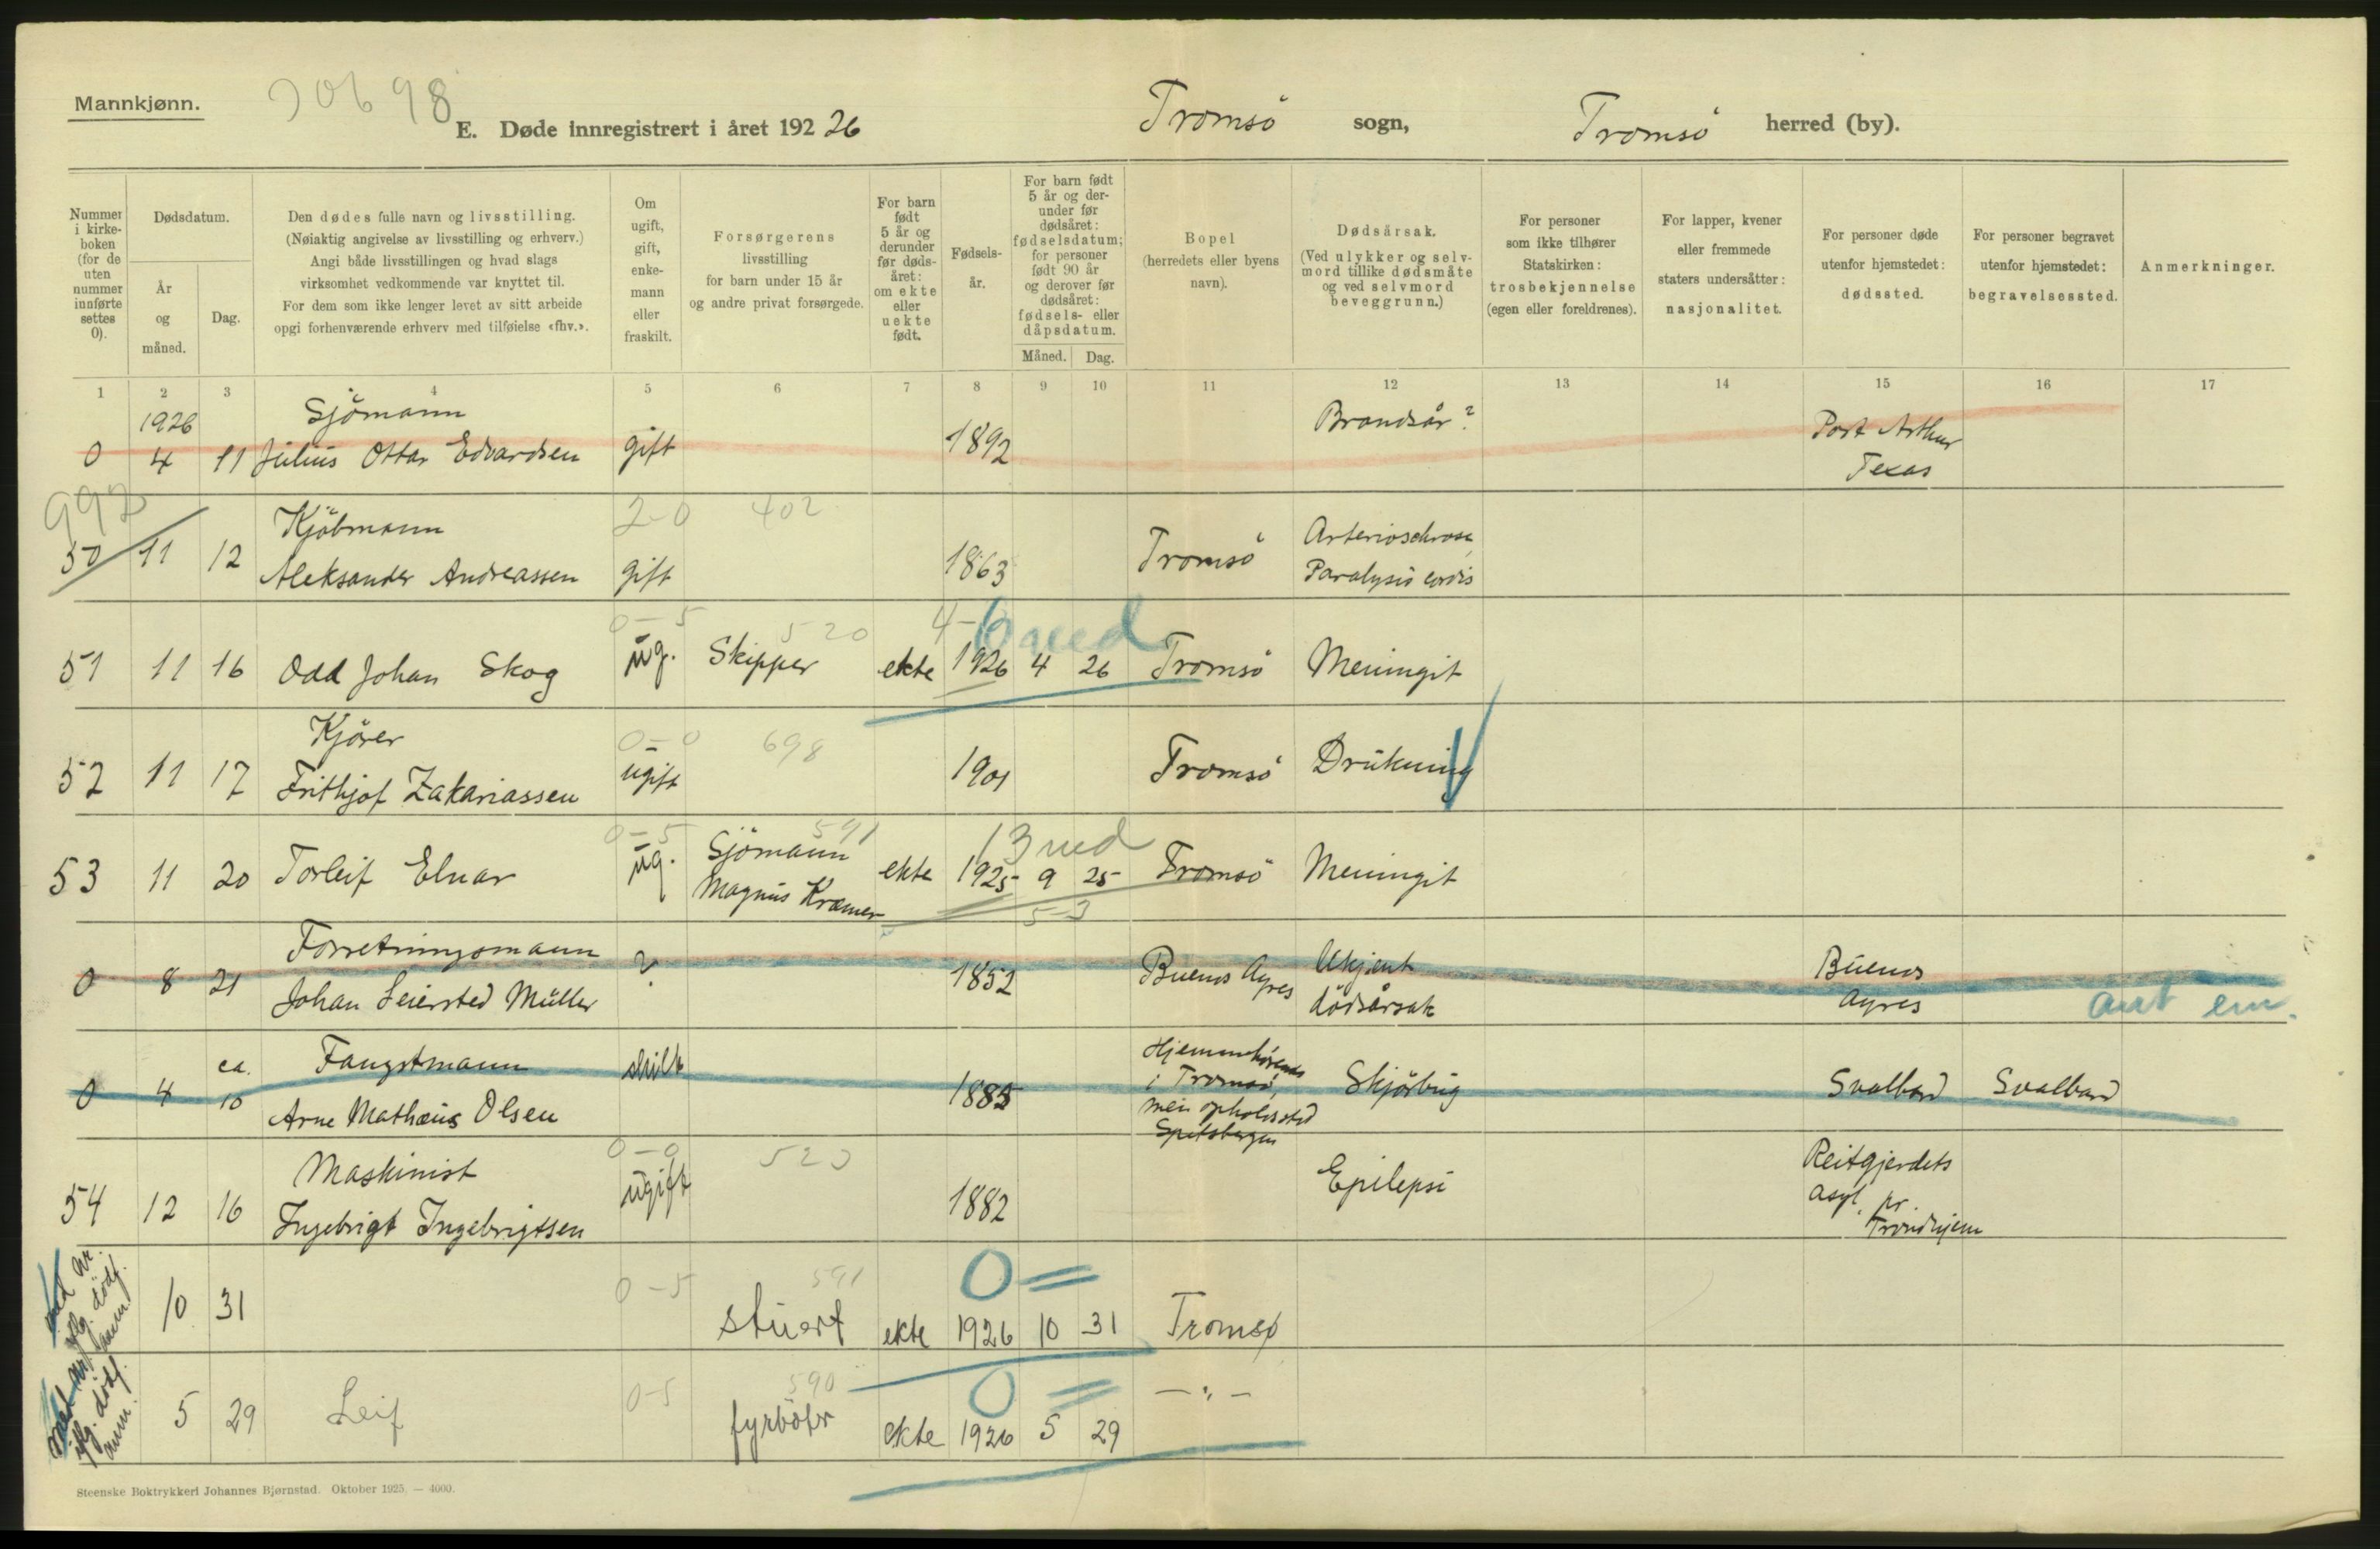 Mannkjønn.
70698
E. Døde innregistrert i året 192 26
Tromsö sogn,
Tromsö herred (by).
Nummer i kirke- boken (for de uten nummer innførte settes 0).
Dødsdatum.
År og måned.
Dag.
Den dødes fulle navn og livsstilling.
(Nøiaktig angivelse av livsstilling og erhverv.)
Angi både livsstillingen og hvad slags
virksomhet vedkommende var knyttet til.
For dem som ikke lenger levet av sitt arbeide
opgi forhenværende erhverv med tilføielse «fhv.».
Om ugift, gift, enke- mann eller fraskilt.
Forsørgerens
livsstilling
for barn under 15 år
og andre privat forsørgede.
For barn født 5 år og derunder før døds- året: om ekte eller uekte født.
Fødsels- år.
For barn født 5 år og der- under før dødsåret: fødselsdatum; for personer født 90 år og derover før dødsåret: fødsels- eller dåpsdatum.
Måned. Dag.
Bopel
(herredets eller byens
navn).
Dødsårsak.
(Ved ulykker og selv-
mord tillike dødsmåte
og ved selvmord
beveggrunn.)
For personer
som ikke tilhører
Statskirken:
trosbekjennelse
(egen eller foreldrenes).
For lapper, kvener
eller fremmede
staters undersåtter:
nasjonalitet.
For personer døde
utenfor hjemstedet:
dødssted.
For personer begravet
utenfor hjemstedet:
begravelsessted.
Anmerkninger.
1 2 3 4 5 6 7 8 9 10 11 12 13 14 15 16 17
1926 Sjömann Brandsår? Port Arthur
0 4 11 Julius Ottar Edvardsen gift 1892 Texas
992 Kjöbmann 2-0 402 Arteriosclerose
50 11 12 Aleksander Andreassen gift 1863 Tromsö Paralysis cordis
0-5 520 4- 6 med
51 11 16 Odd Johan Skog ug. Skipper ekte 1926 4 26 Tromsö Meningit
Kjörer 0-0 698
52 11 17 Frithjof Zakariassen ugift 1901 Tromsö Drukning
0-5 591 13 md
Sjömann
53 11 20 Torleif Elnar ug. Magnus Kræmer ekte 1925 9 25 Tromsö Meningit
5-3
Forretningsmann Ukjent Buenos
0 8 21 Johan Leiersted Müller ? 1852 Buenos Ayres dödsårsak Ayres
ca. Fangstmann skilt Hjemmehörende
0 4 10 Arne Mathæus Olsen 1885 i Tromsö, Skjörbug Svalbard Svalbard
men opholdssted
Spitsbergen
Maskinist 0-0 523 Reitgjerdets
54 12 16 Ingebrigt Ingebrigtsen ugift 1882 Epilepsi asyl, pr.
Trondhjem
0-5 591 0 =
10 31 stuert ekte 1926 10 31 Tromsø
590 0 =
5 29 Leif 0-5 fyrböter ekte 1926 5 29 — " —
Steenske Boktrykkeri Johannes Bjørnstad. Oktober 1925. — 4000.